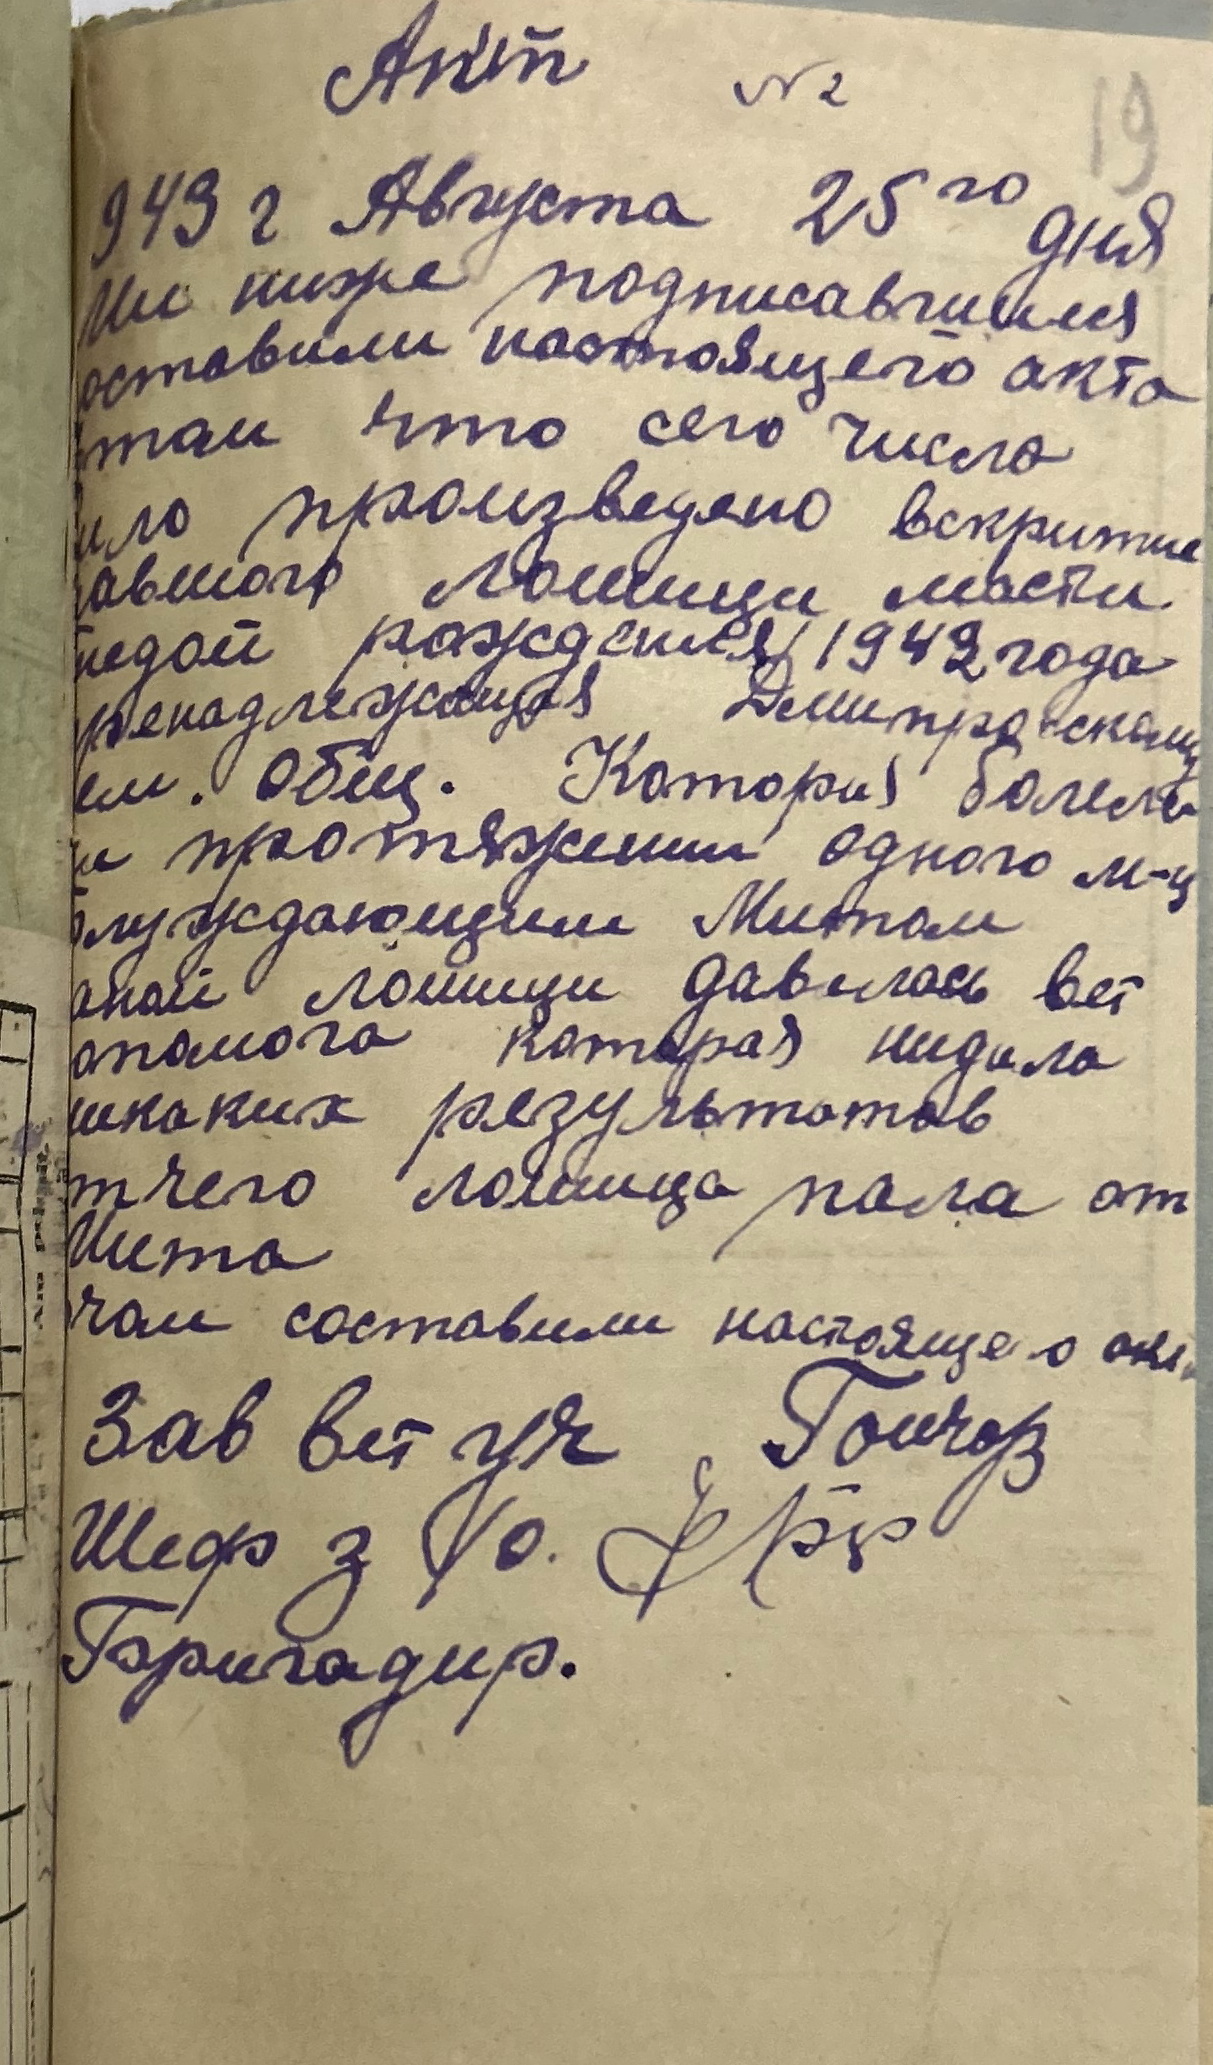 Акт № 2
19
943 г Августа 25го дня
Ми ниже подписавшиися
оставили настоящего акта
том что сего числа
ило произведено вскритие
авшого лошици масти
недой рождения 1942 года
ренадлежащая Дмитровскому
ем. общ. Котория болела
на протяжении одного м-ц
блуждающим Митом
аной лошици давалась вет
опомога которая нидала
икаких результатов
тчего лошица пала от
Мита
чом составили настоящего акт
Зав вет уч Гончар
Шеф з
Бригадир.